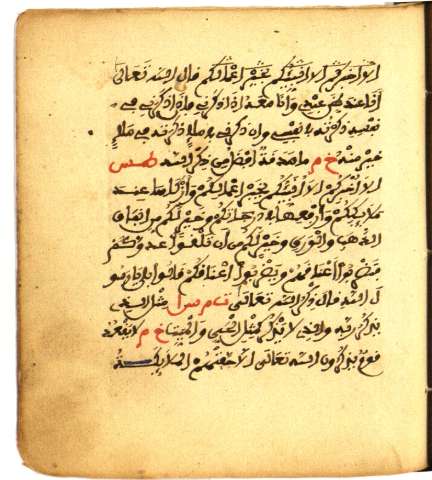 الا اخبركم الا انبئكم بخير اعمالكم قال الله تعالى
انا عند ظن عبدي وانا معه اذا ذكرني فاذا ذكرني في
نفسه ذكرته في نفسي وان ذكرني في ملإ ذكرته في ملإ
خير منه خ م ما صدقة افضل من ذكر الله
الا اخبركم الا انبئكم بخير اعمالكم وازكاها عند
مليككم وارفعها في درجاتكم وخير لكم من انفاق
الذهب والورق وخير لكم من ان تلقوا عدوكم
فتضربوا اعناقهم ويضربوا اعناقكم قالوا بلى يا رسو
ل الله قال ذكر الله تعالى مثل الذي
يذكر ربه والذي لا يذكر كمثل الحي والميت خ م لا يقعد
قوم يذكرون الله تعالى الا حفتهم الملائكة